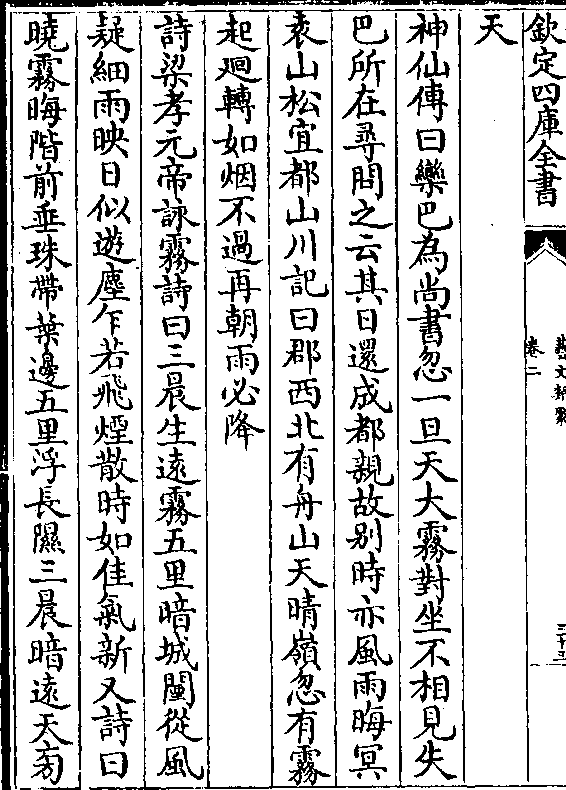 欽定四庫全書
藝文類聚
卷二
三十三
天
神仙傳曰欒巴為尚書忽一旦天大霧對坐不相見失
巴所在尋問之云其日還成都親故别時亦風雨晦冥
袁山松宜都山川記曰郡西北有舟山天晴嶺忽有霧
起廻轉如烟不過再朝雨必降
詩梁孝元帝詠霧詩曰三晨生遠霧五里暗城闉從風
疑細雨映日似遊塵乍若飛煙散時如佳氣新又詩曰
曉霧晦階前垂珠帶葉邊五里浮長隰三晨暗遠天㫄